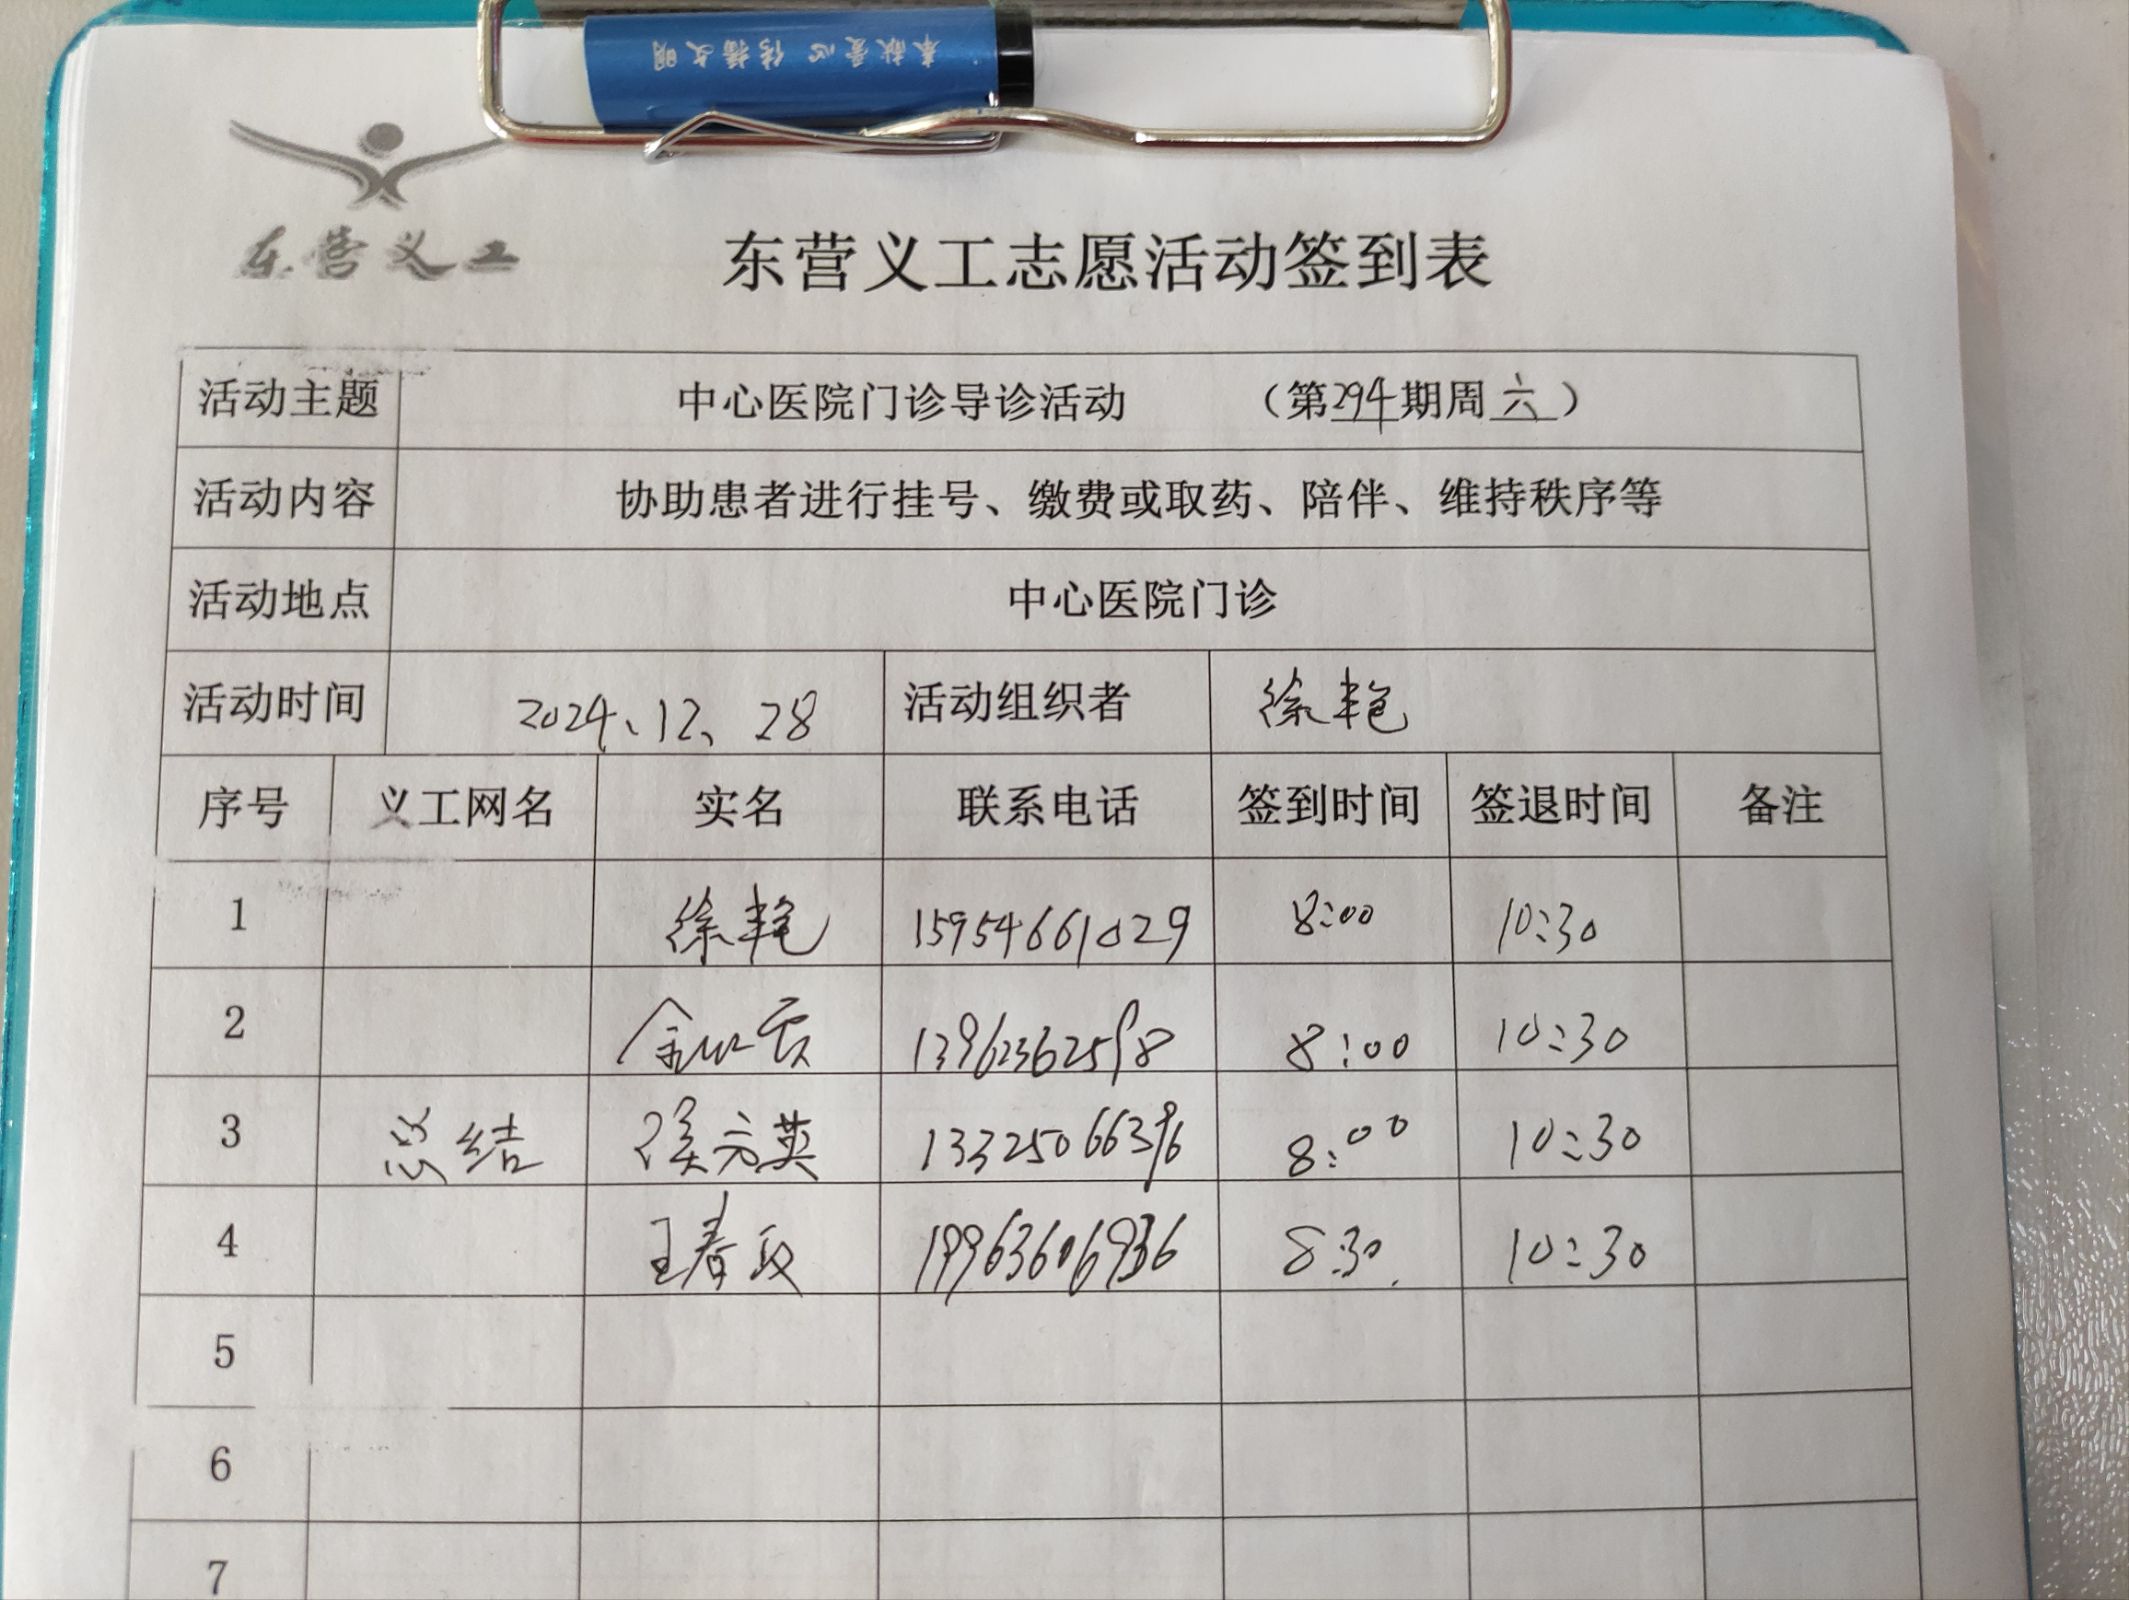 奉献爱心 传播文明
东营义工
东营义工志愿活动签到表
活动主题 中心医院门诊导诊活动 （第294期周六）
活动内容 协助患者进行挂号、缴费或取药、陪伴、维持秩序等
活动地点 中心医院门诊
活动时间 2024、12、28 活动组织者 徐艳
序号 义工网名 实名 联系电话 签到时间 签退时间 备注
1 徐艳 15954661029 8:00 10:30
2 13963362598 8:00 10:30
3 总结 侯方英 13325066396 8:00 10:30
4 王春 19963606936 8:30 10:30
5
6
7